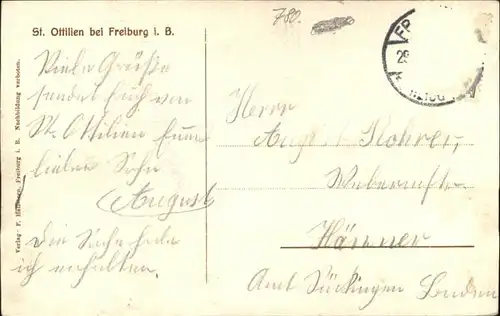 780.
St. Ottilien bei Freiburg i. B.
Viele Grüße
sendet Euch von
St. Ottilien Euer
lieber Sohn
August
Die Sache habe
ich erhalten.
Verlag F. Freiburg i. B. Nachbildung verboten.
FR
29
Herrn
August Rohrer,
Hänner
Amt Säckingen Baden